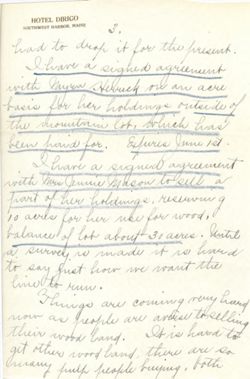 HOTEL DIRIGO
SOUTHWEST HARBOR, MAINE
3.
had to drop it for the present.
I have a signed agreement
with on an acre
basis for her holdings outside of
the mountain lot, which has
been paid for. Expires June 1st.
I have a signed agreement
with Mrs Jennie to sell a
part of her holdings, reserving
10 acres for her use for wood,
balance of lot about 30 acres. Until
a survey is made it is hard
to say just how we want the
line to run.
Things are coming very hard
now as people are to selling
their wood land. It is hard to
get other wood land, there are so
many pulp people buying, both